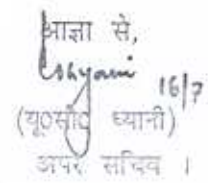 आज्ञा से,
16/7
(यू०सी० ध्यानी)
अपर सचिव ।